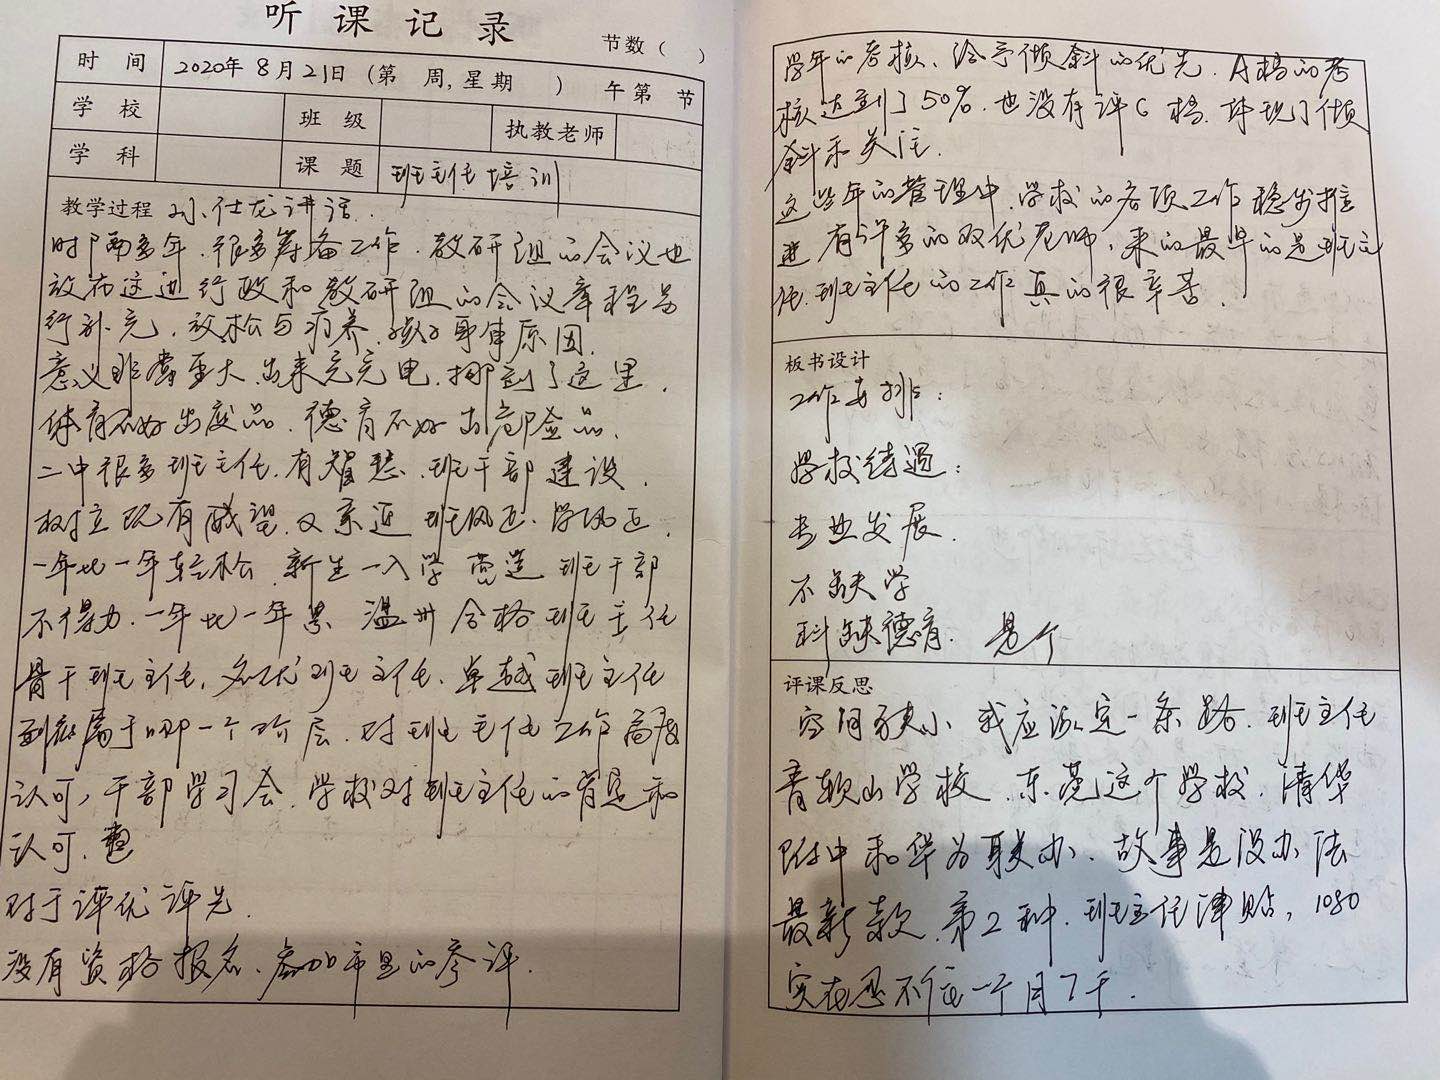 听课记录
节数（ ）
时间 2020年8月21日（第 周，星期 ） 午第 节
学校 班级 执教老师
学科 课题 班主任培训
教学过程 孙仕龙讲话.
时隔多年.很多筹备工作.教研组的会议也
放在这进行政和教研组的会议章程另
行补充.放松与疗养.身体原因.
意义非常重大.出来充充电.挪到了这里.
体育不好出废品.德育不好出危险品.
二中很多班主任.有智慧.班干部建设.
树立既有威望.又亲近 班风正.学风正.
一年比一年轻松.新生一入学 营造 班干部
不得力.一年比一年累 温州合格班主任
骨干班主任.名优班主任.卓越班主任
到底属于哪一个阶层.对班主任工作高度
认可,干部学习会.学校对班主任的肯定和
认可.
对于评优评先.
没有资格报名.参加市里的参评.
学年的考核、给予倾斜的优先.A格的考
核达到了50%.也没有评C格.体现了倾
斜和关注.
这学年的管理中.学校的各项工作稳步推
进 有许多的双优老师,来的最早的是班主
任.班主任的工作真的很辛苦.
板书设计
工作安排:
学校待遇:
专业发展.
不缺学
科缺德育. 是个
评课反思
空间狭小 我应该定一条路.班主任
青软山学校.东莞这个学校.清华
附中和华为联办.故事是没办法
最新款.第2种.班主任津贴,1080
实在忍不住一个月了千.